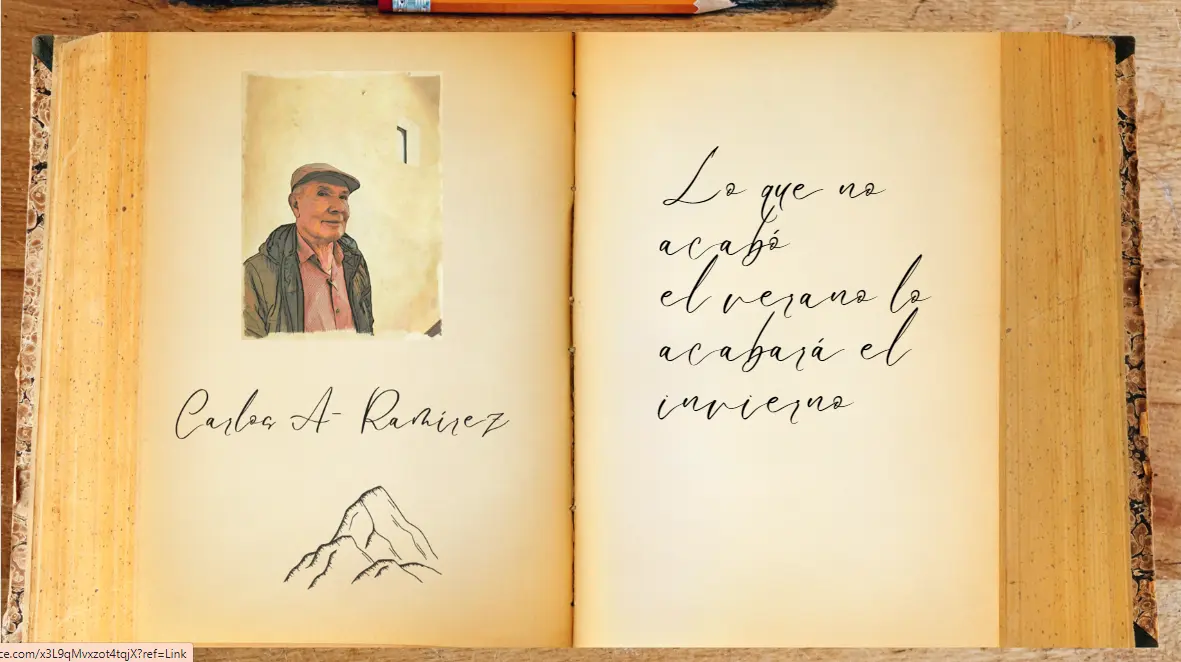 Carlos A- Ramírez
Lo que no
acabó
el verano lo
acabará el
invierno
ce.com/x3L9qMvxzot4tqjX?ref=Link